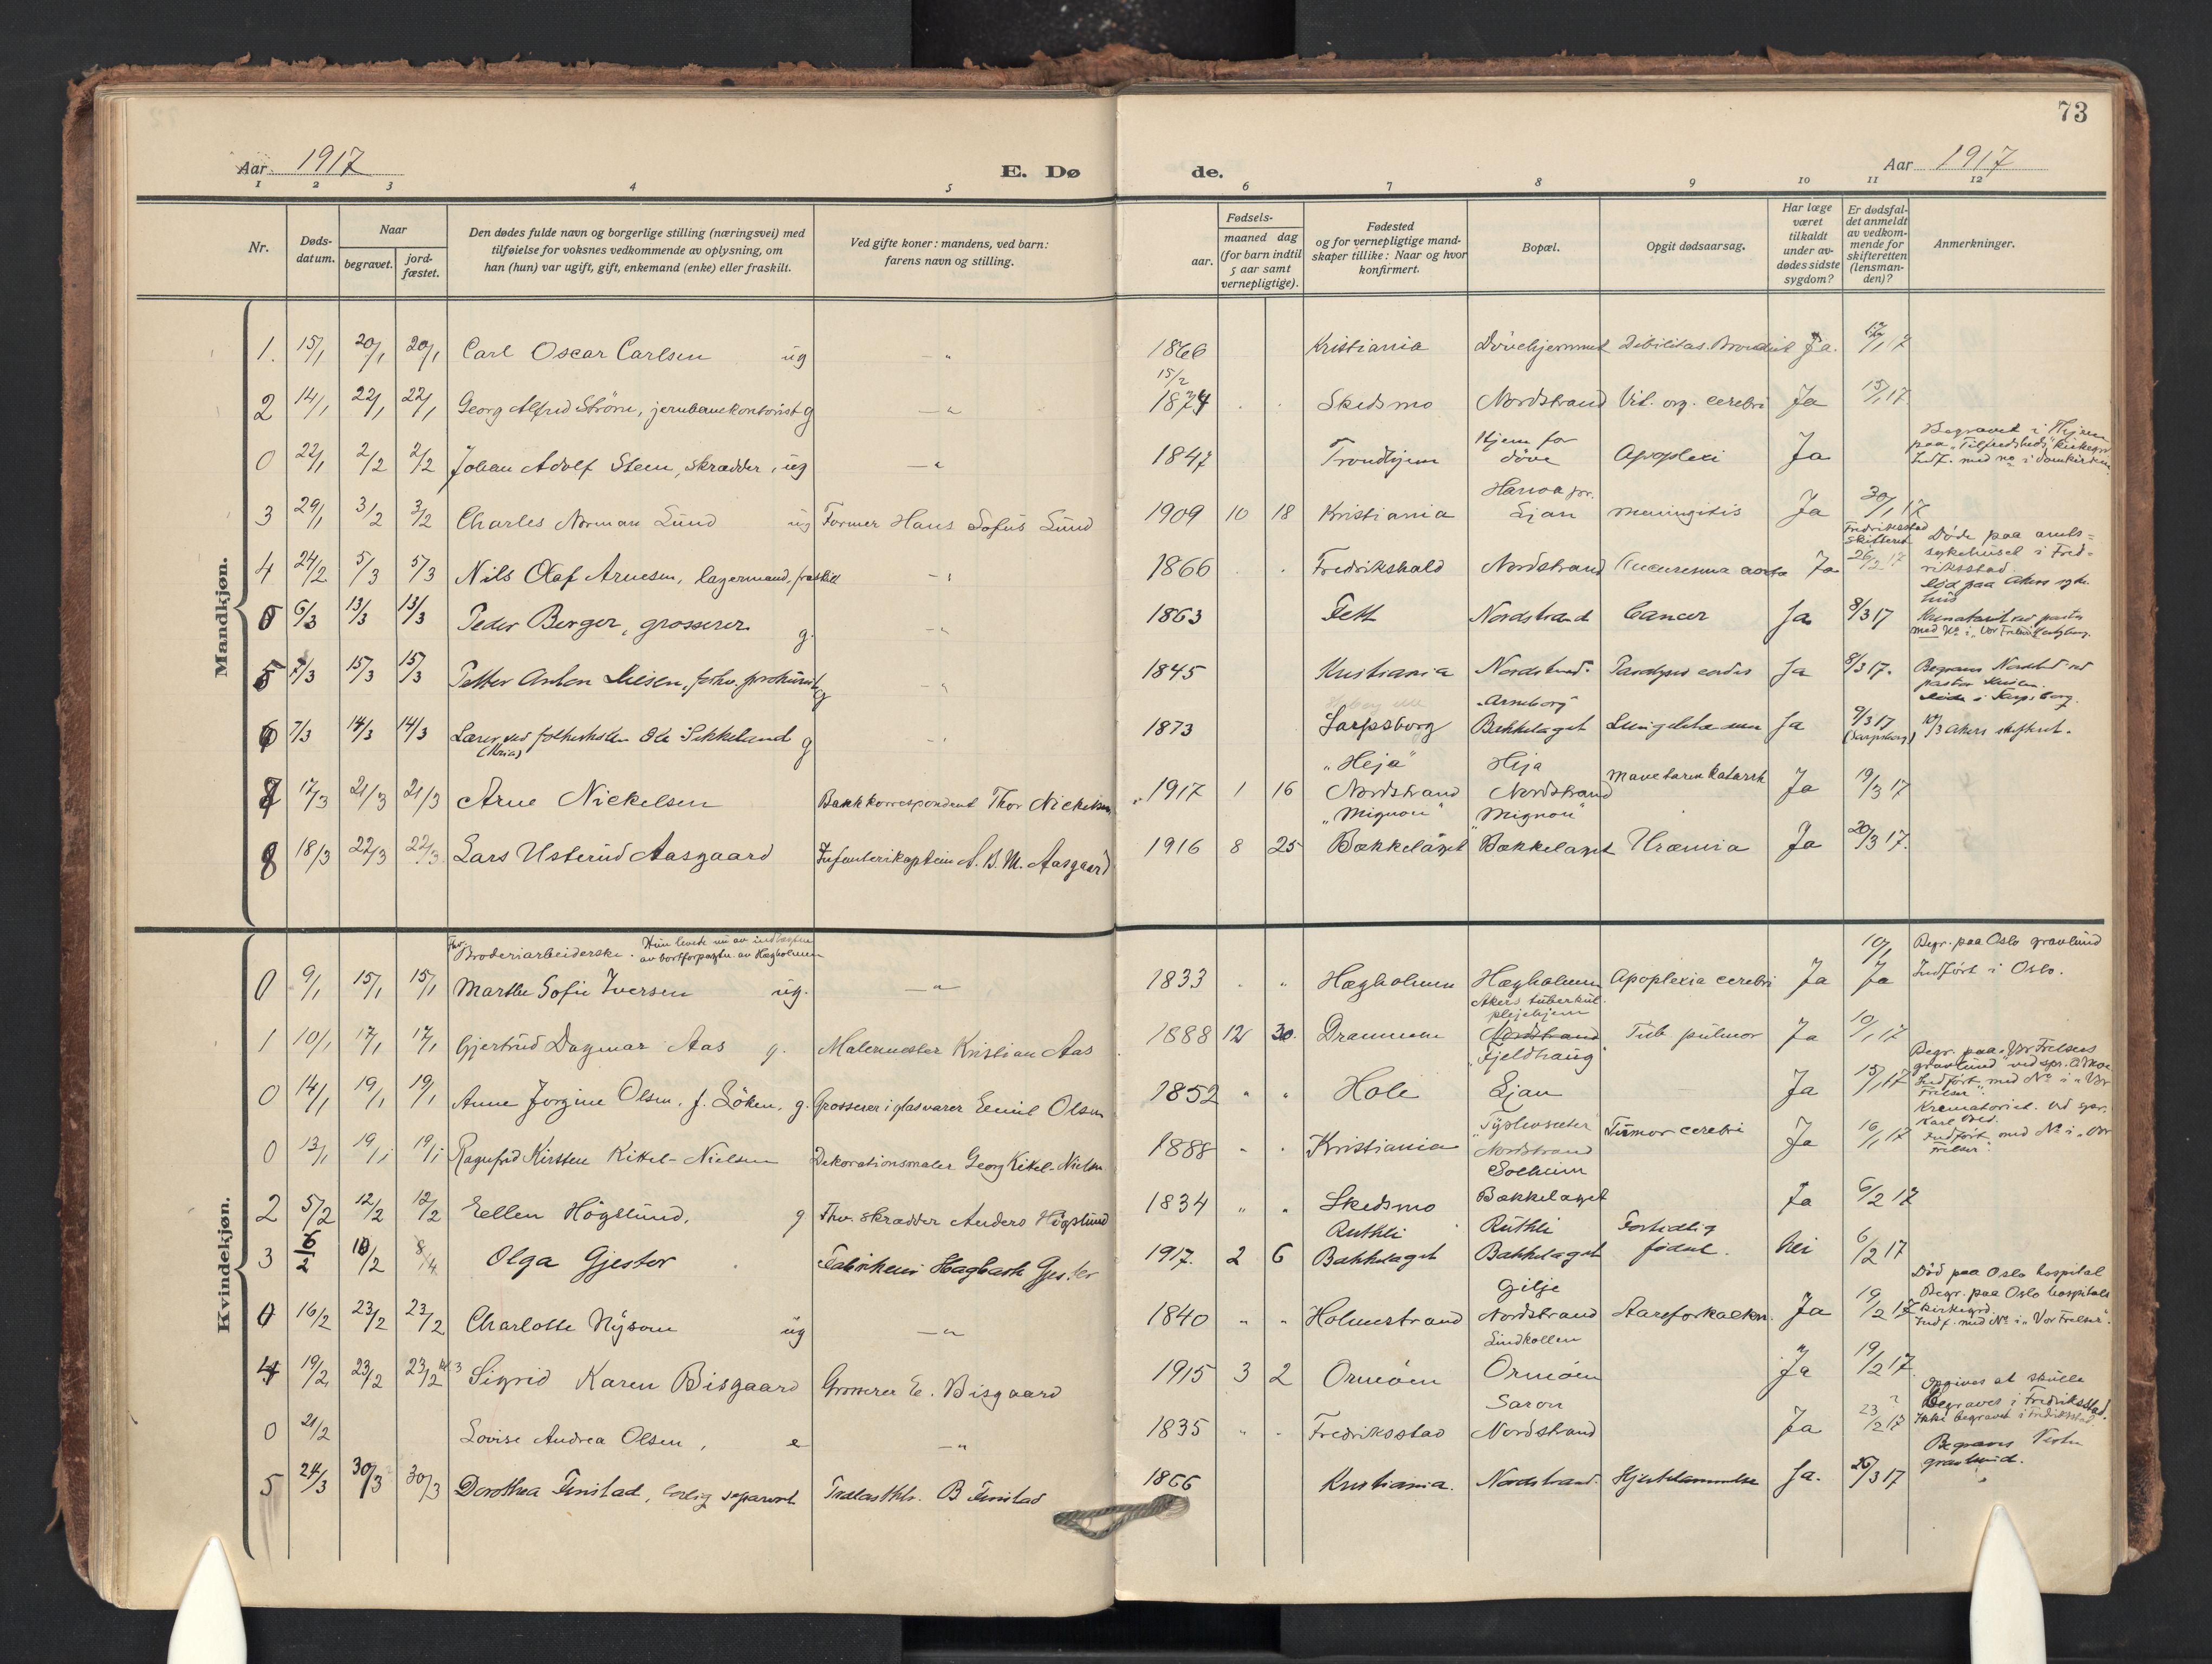 73
Aar 1917 E. Døde. Aar 1917
1 2 3 4 5 6 7 8 9 10 11 12
Nr.
Døds-datum.
Naar
begravet.
jord-fæstet.
Den dødes fulde navn og borgerlige stilling (næringsvei) med
tilføielse for voksnes vedkommende av oplysning, om
han (hun) var ugift, gift, enkemand (enke) eller fraskilt.
Ved gifte koner: mandens, ved barn:
farens navn og stilling.
Fødsels-
aar.
maaned dag
(for barn indtil
5 aar samt
vernepligtige).
Fødested
og for vernepligtige mand-
skaper tillike: Naar og hvor
konfirmert.
Bopæl.
Opgit dødsaarsag.
Har læge
været
tilkaldt
under av-
dødes sidste
sygdom?
Er dødsfal-
det anmeldt
av vedkom-
mende for
skifteretten
(lensman-
den)?
Anmerkninger.
Mandkjøn.
1. 15/1 20/1 20/1 Carl Oscar Carlsen ug 1866 Kristiania Døvehjemmet Debilitas. Ja. /1 17
2 14/1 22/1 22/1 Georg Alfred Strøm, jernbanekontorist g 15/2 1874 Skedsmo Nordstrand Vit. org. cerebri Ja 15/1 17.
0 22/1 2/2 2/2 Johan Adolf Steen, skrædder, ug 1847 Trondhjem Hjem for døve Apoplexi Ja Begravet i Thjem paa "Tilfredsheds" kirkegrd Indf. med no i Domkirken.
3 29/1 3/2 3/2 Charles Norman Lund ug Former Hans Sofus Lund 1909 10 18 Kristiania Ljan meningitis Ja 30/1 17
4 24/2 5/3 5/3 Nils Olaf Arnesen, lagermand, fraskilt 1866 Fredrikshald Nordstrand Aneuresma aorta Ja Fredriksstad skifteret 26/2 17 Døde paa amts=sykehuset i Fredriksstad
5 6/3 13/3 13/3 Peder Berger, grosserer g. 1863 Fett Nordstrand Cancer Ja 8/3 17 død paa Akers sykehus Krematoriet ved pastor med No i "Vor Frelser"
5 7/3 15/3 15/3 Petter Anton forhv. g 1845 Kristiania Nordstrand. Paralysis cordis Ja 8/3 17. Begraves Nordstrand ved pastor
6 7/3 14/3 14/3 Lærer ved folkeskolen Ole Sekkeland (Kria) g 1873 Sarpsborg "Arneborg" Bækkelaget Ja 9/3 17 (Sarpsborg) Døde i Sarpsborg. 10/3 Akers skifteret.
7 17/3 21/3 21/3 Arne Nickelsen Bankkorrespondent Thor Nickelsen 1917 1 16 "Heja" Nordstrand Heja Nordstrand Mavetarmkatarrh Ja 19/3 17
8 18/3 22/3 22/3 Lars Usterud Aasgaard Infanterikaptein N. B. M. Aasgaard 1916 8 25 "Mignon" Bækkelaget "Mignon" Bækkelaget Uræmia Ja 20/3 17.
Kvindekjøn.
0 9/1 15/1 15/1 Fhv. Broderiarbeiderske. Hun levede nu av indtægten av bortforpagtn. av Hægholmen Marthe Sofie Iversen ug. 1833 Hægholmen Hægholmen Apoplexia cerebri Ja 10/1 Ja Begr. paa Oslo gravlund Indført i Oslo.
1 10/1 17/1 17/1 Gjertrud Dagmar Aas g. Malermester Kristian Aas 1888 12 30. Drammen Akers tuberkul. plejehjem Nordstrand Tub. pulmor Ja 10/1 17
0 14/1 19/1 19/1 Anne Jorgine Olsen, f. Løken, g. Grosserer i glasvarer Emil Olsen 1852 Hole "Fjeldhaug" Ljan Ja 15/1 17 Begr. paa "Vor Frelsers gravlund" ved spr. Indført med No i "Vor Frelser".
0 13/1 19/1 19/1 Ragnfrid Kirsten Kittel-Nielsen Dekorationsmaler Georg Kitel-Nielsen 1888 Kristiania Nordstrand Tumor cerebri Ja 16/1 17 Krematoriet. ved spr. Karl Indført med No i "Vor Frelser".
2 5/2 12/2 12/2 Ellen Høgslund, g Fhv. skrædder Anders Høgslund 1834 Skedsmo Solheim Bækkelaget Ja 6/2 17
3 6/2 10/2 8/4 Olga Gjester Fabrikeier Hagbarth Gjester 1917. 2 6 Ruthli Bækkelaget Ruthli Bækkelaget Fortidlig født. Nei 6/2 17
0 16/2 23/2 23/2 Charlotte Nysom ug 1840 Holmestrand Gilje Nordstrand Aareforkalkn. Ja 19/2 17 Død paa Oslo hospital Begr. paa Oslo hospitals kirkegrd. Indf. med No i "Vor Frelser".
4 19/2 23/2 23/2 kl 3 Sigrid Karen Bisgaard Grosserer E. Bisgaard 1915 3 2 Ormøen Lindkollen Ormøen Ja 19/2 17.
0 21/2 Lovise Andrea Olsen, e 1835 Fredriksstad Saron Nordstrand Ja 23/2 17 ? Opgives at skulle begraves i Fredriksstad. Ikke begravet i Fredriksstad.
5 24/3 30/3 30/3 Dorothea Finstad, lovlig separert Trælasthlr. B Finstad 1866 Kristiania. Nordstrand. Hjertelammelse Ja. 26/3 17 Begraves Vestre gravlund.